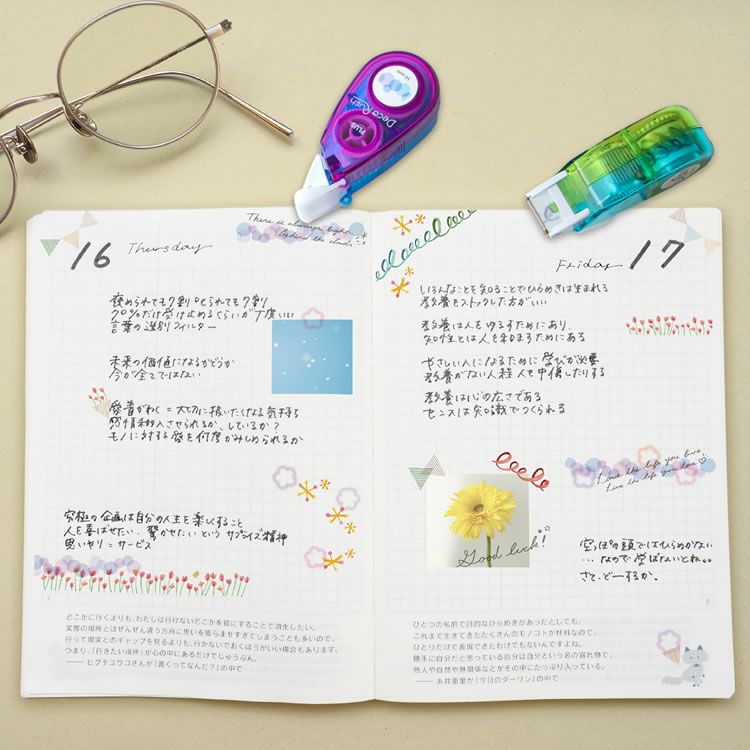 10 mm
Deco Rush
PLUS
16 Thursday
There is always light
behind the clouds.
褒められても7割 叱られても7割
70%だけ受け止めるくらいが丁度いい
言葉の選別フィルター
未来の価値になるかどうか
今が全てではない
愛着がわく=大切に扱いたくなる気持ち
感情移入させられるか、しているか?
モノに対する愛を何度かみしめられるか
究極の企画は自分の人生を楽しくすること
人を喜ばせたい、驚かせたいという サプライズ精神
思いやり=サービス
どこかに行くよりも、わたしは行けないどこかを絵にすることで消化したい。
実際の場所とはぜんぜん違う方向に思いを巡らませすぎてしまうことも多いので、
行って現実とのギャップを見るよりも、行かないでおくほうがいい場合もあります。
つまり、「行きたい場所」が心の中にあるだけでじゅうぶん。
—— ヒグチユウコさんが『書くってなんだ?』の中で
Friday 17
いろんなことを知ることでひらめきは生まれる
教養をストックした方がいい
教養は人をゆるすためにあり、
知性とは人を知ますためにある
やさしい人になるために学びが必要
教養がない人程 人を中傷したりする
教養は心の広さである
センスは知識でつくられる
Love the life you live.
Live the life you love.
Good luck!
空っぽの頭ではひらめかない
…なので学ばないとね。。
さて、どーするか。
8
ひとつの私的で詩的なひらめきがあったとしても、
これまで生きてきたたくさんのモノゴトが材料なので、
ひとりだけで表現できたわけでもないんですよね。
勝手に自分だと思っている自分は自分という名の容れ物で、
他人や自然や無関係などがその中にたっぷり入っている。
—— 糸井重里が『今日のダーリン』の中で